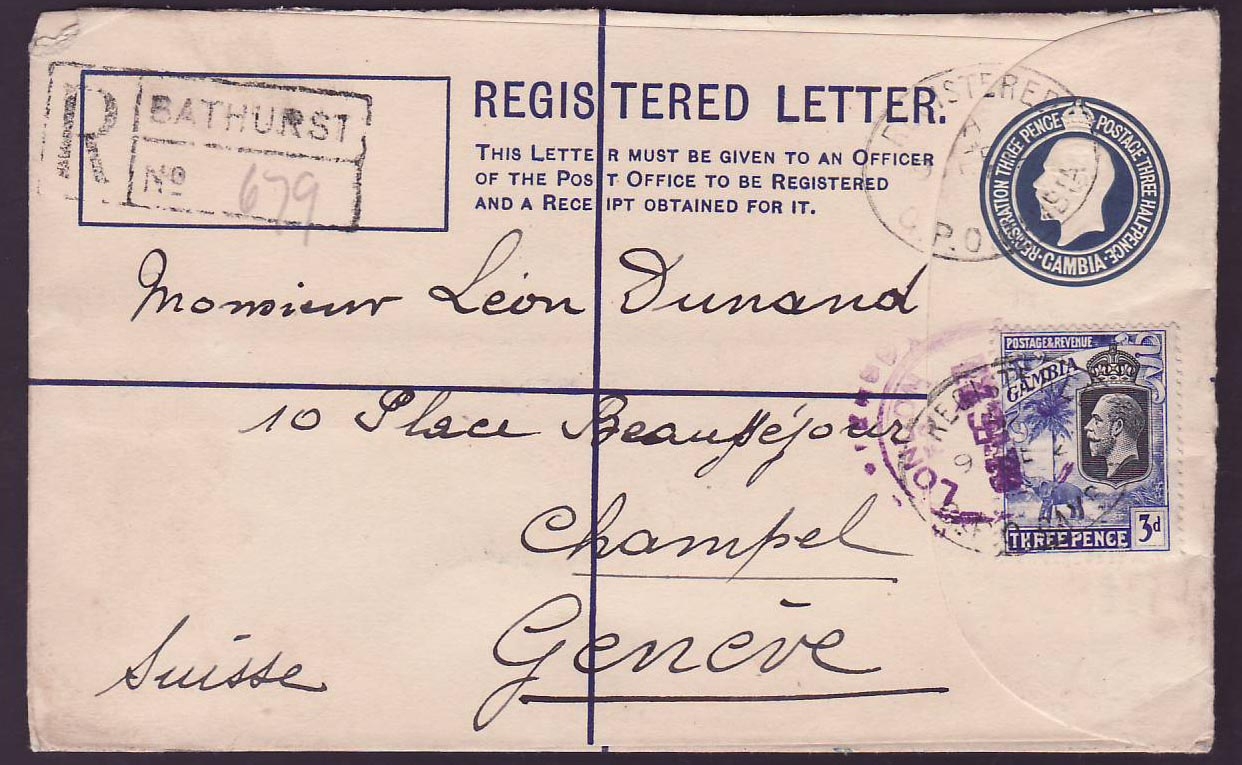 REGISTERED LETTER.
THIS LETTER MUST BE GIVEN TO AN OFFICER
OF THE POST OFFICE TO BE REGISTERED
AND A RECEIPT OBTAINED FOR IT.
R
BATHURST
No 679
REGISTERED
G.P.O
REGISTRATION THREE PENCE POSTAGE THREE HALFPENCE
GAMBIA
Monsieur Léon Dunand
10 Place Beauséjour
Champel
Genève
Suisse
POSTAGE & REVENUE
GAMBIA
THREE PENCE 3d
LONDON